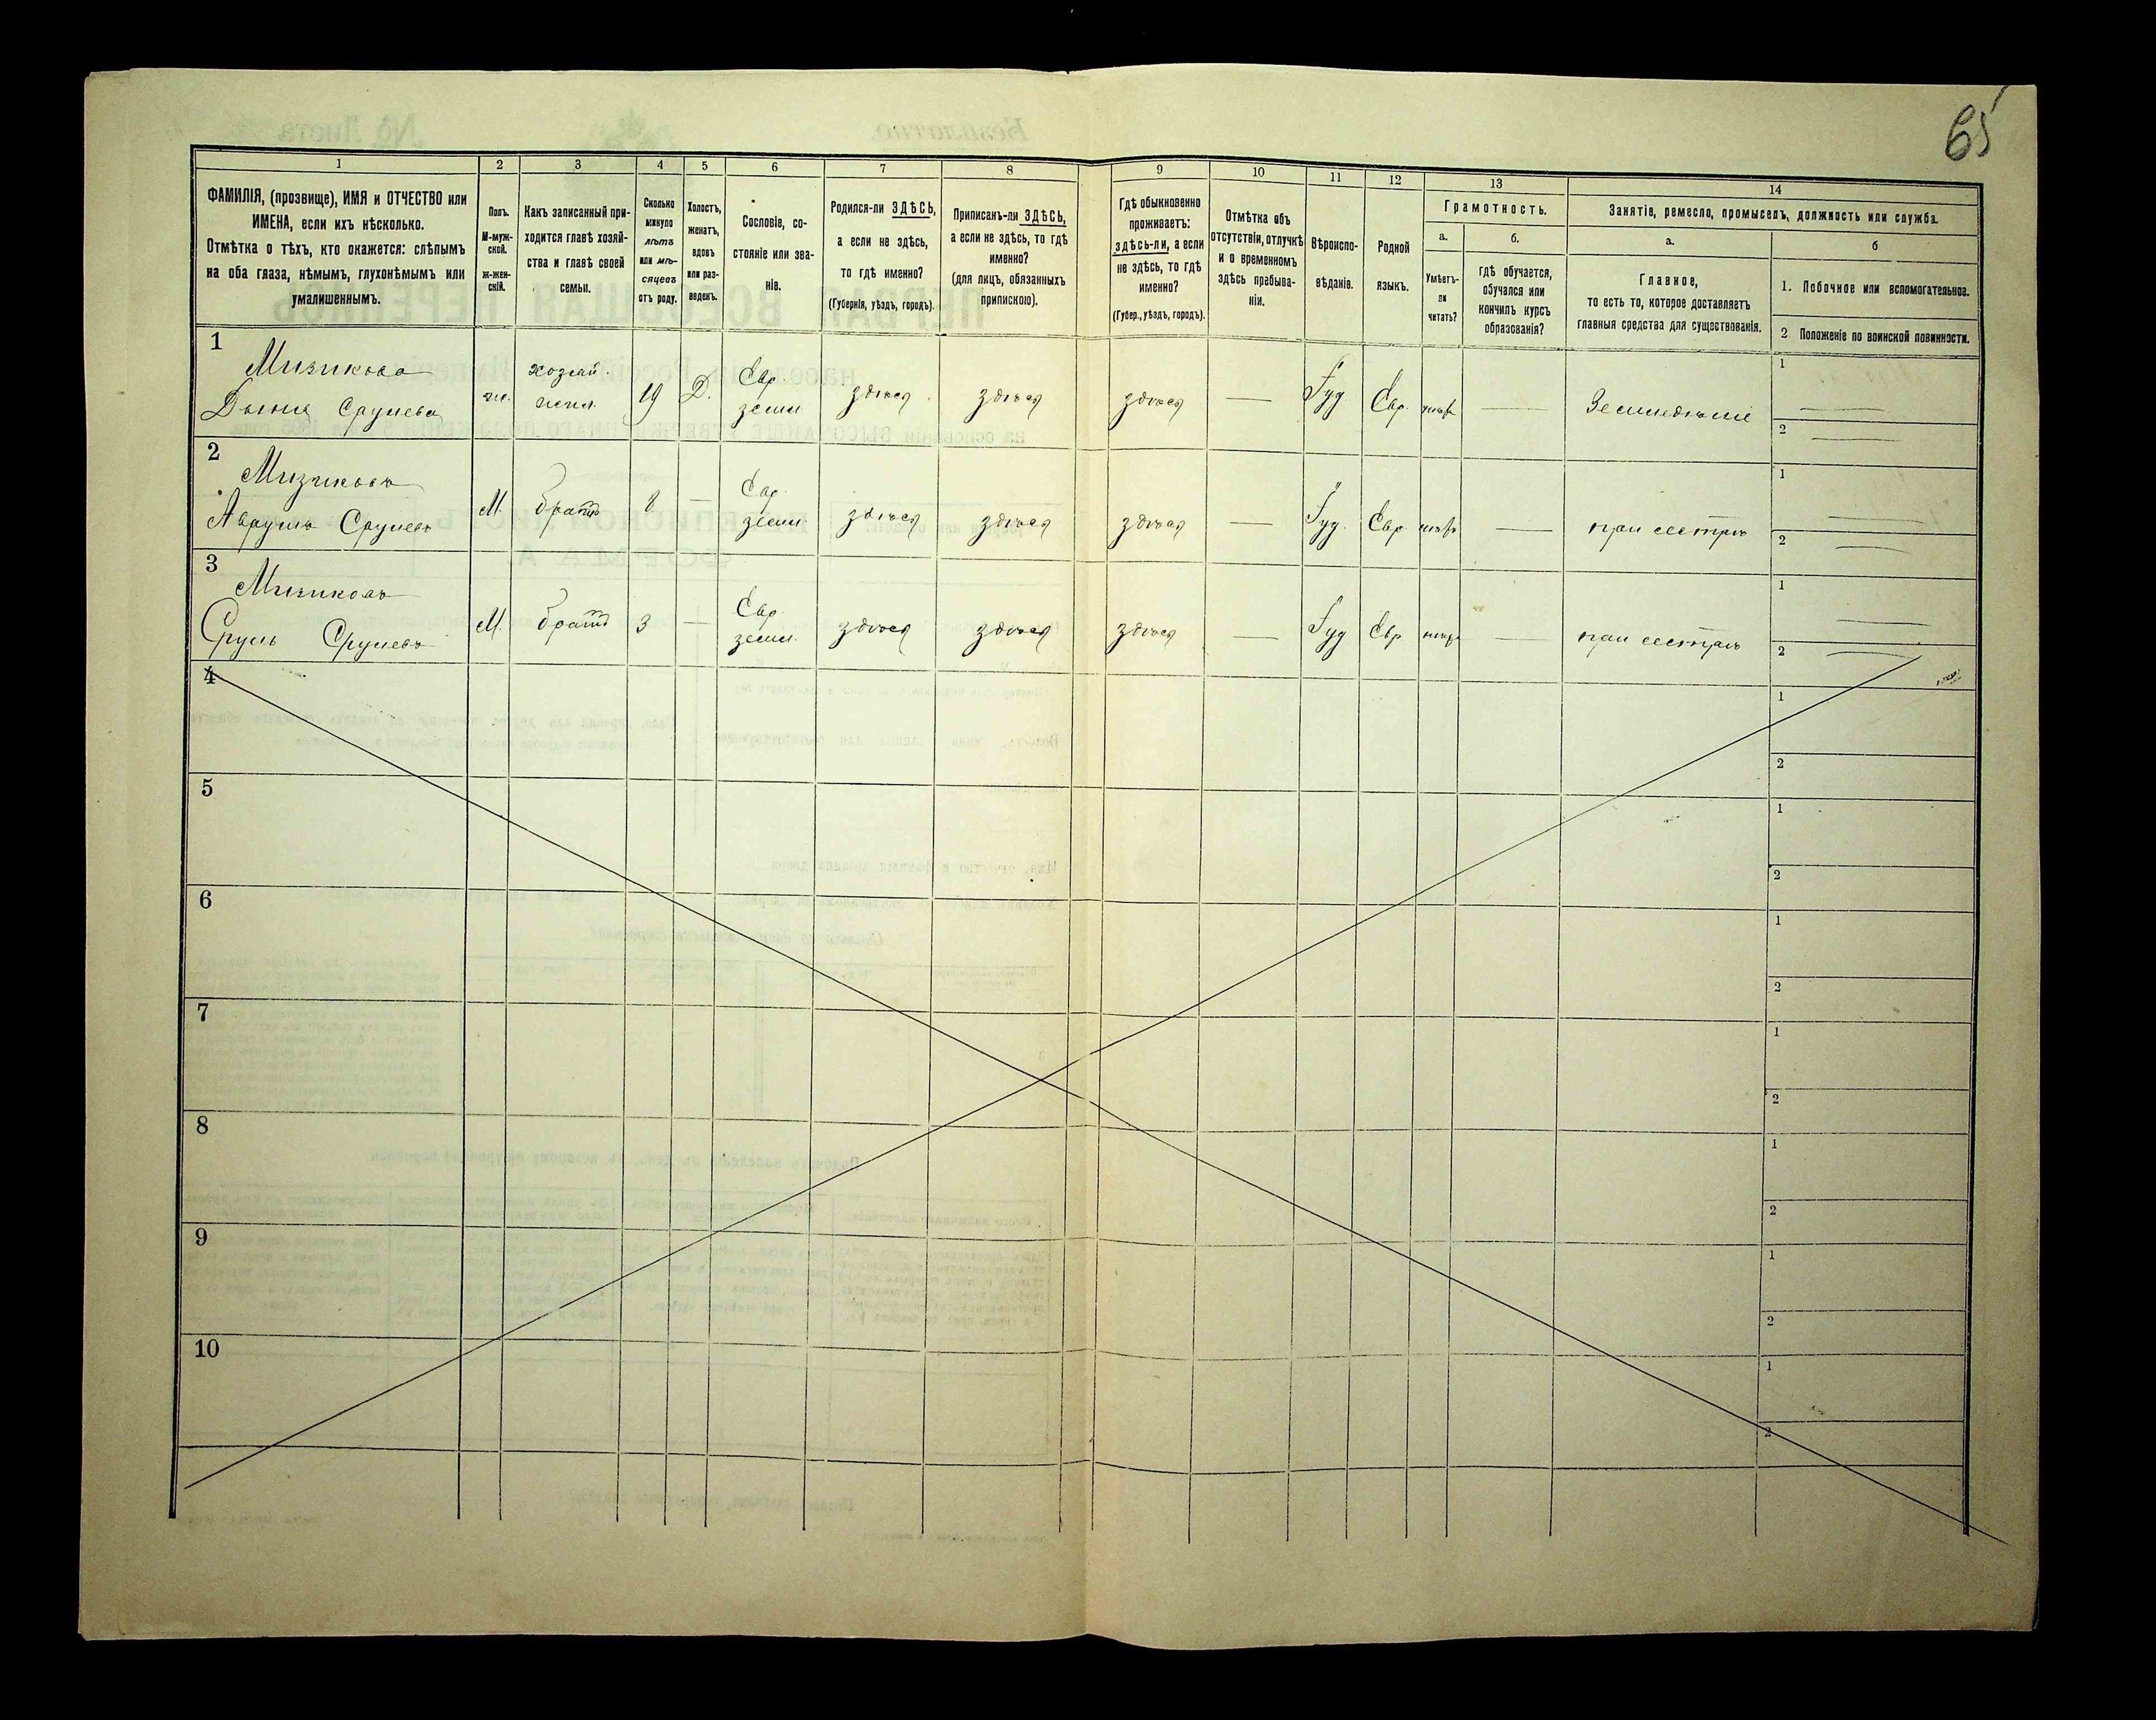 65
1 2 3 4 5 6 7 8 9 10 11 12 13 14
ФАМИЛІЯ, (прозвище), ИМЯ и ОТЧЕСТВО или
ИМЕНА, если ихъ нѣсколько.
Отмѣтка о тѣхъ, кто окажется: слѣпымъ
на оба глаза, нѣмымъ, глухонѣмымъ или
умалишеннымъ.
Полъ.
М-муж-
ской.
ж-жен-
скій.
Какъ записанный при-
ходится главѣ хозяй-
ства и главѣ своей
семьи.
Сколько
минуло
лѣтъ
или мѣ-
сяцевъ
отъ роду.
Холостъ,
женатъ,
вдовъ
или раз-
веденъ.
Сословіе, со-
стояніе или зва-
ніе.
Родился-ли ЗДѢСЬ,
а если не здѣсь,
то гдѣ именно?
(Губернія, уѣздъ, городъ).
Приписанъ-ли ЗДѢСЬ,
а если не здѣсь, то гдѣ
именно?
(для лицъ, обязанныхъ
припискою).
Гдѣ обыкновенно
проживаетъ:
здѣсь-ли, а если
не здѣсь, то гдѣ
именно?
(Губер., уѣздъ, городъ).
Отмѣтка объ
отсутствіи, отлучкѣ
и о временномъ
здѣсь пребыва-
ніи.
Вѣроиспо-
вѣданіе.
Родной
языкъ.
Грамотность.
а.
Умѣетъ-
ли
читать?
б.
гдѣ обучается,
обучался или
кончилъ курсъ
образованія?
Занятіе, ремесло, промыселъ, должность или служба.
а.
Главное,
то есть то, которое доставляетъ
главныя средства для существованія.
б
1. Побочное или вспомогательное.
2 Положеніе по воинской повинности.
1
Мизикова
Срулева
хозяй.
19 Д. Евр. земл здѣсь здѣсь здѣсь — Іуд Евр. — Земледѣліе
1 —
2 —
2
Мизиковъ
Аврумъ Срулевъ
М. братъ 8 — Евр. земл. здѣсь здѣсь здѣсь — Іуд. Евр — при сестрѣ
1 —
2 —
3
Мизиковъ
Сруль Срулевъ
М. братъ 3 — Евр. земл. здѣсь здѣсь здѣсь — Іуд Евр — при сестрѣ
1 —
2 —
4
1
2
5
1
2
6
1
2
7
1
2
8
1
2
9
1
2
10
1
2